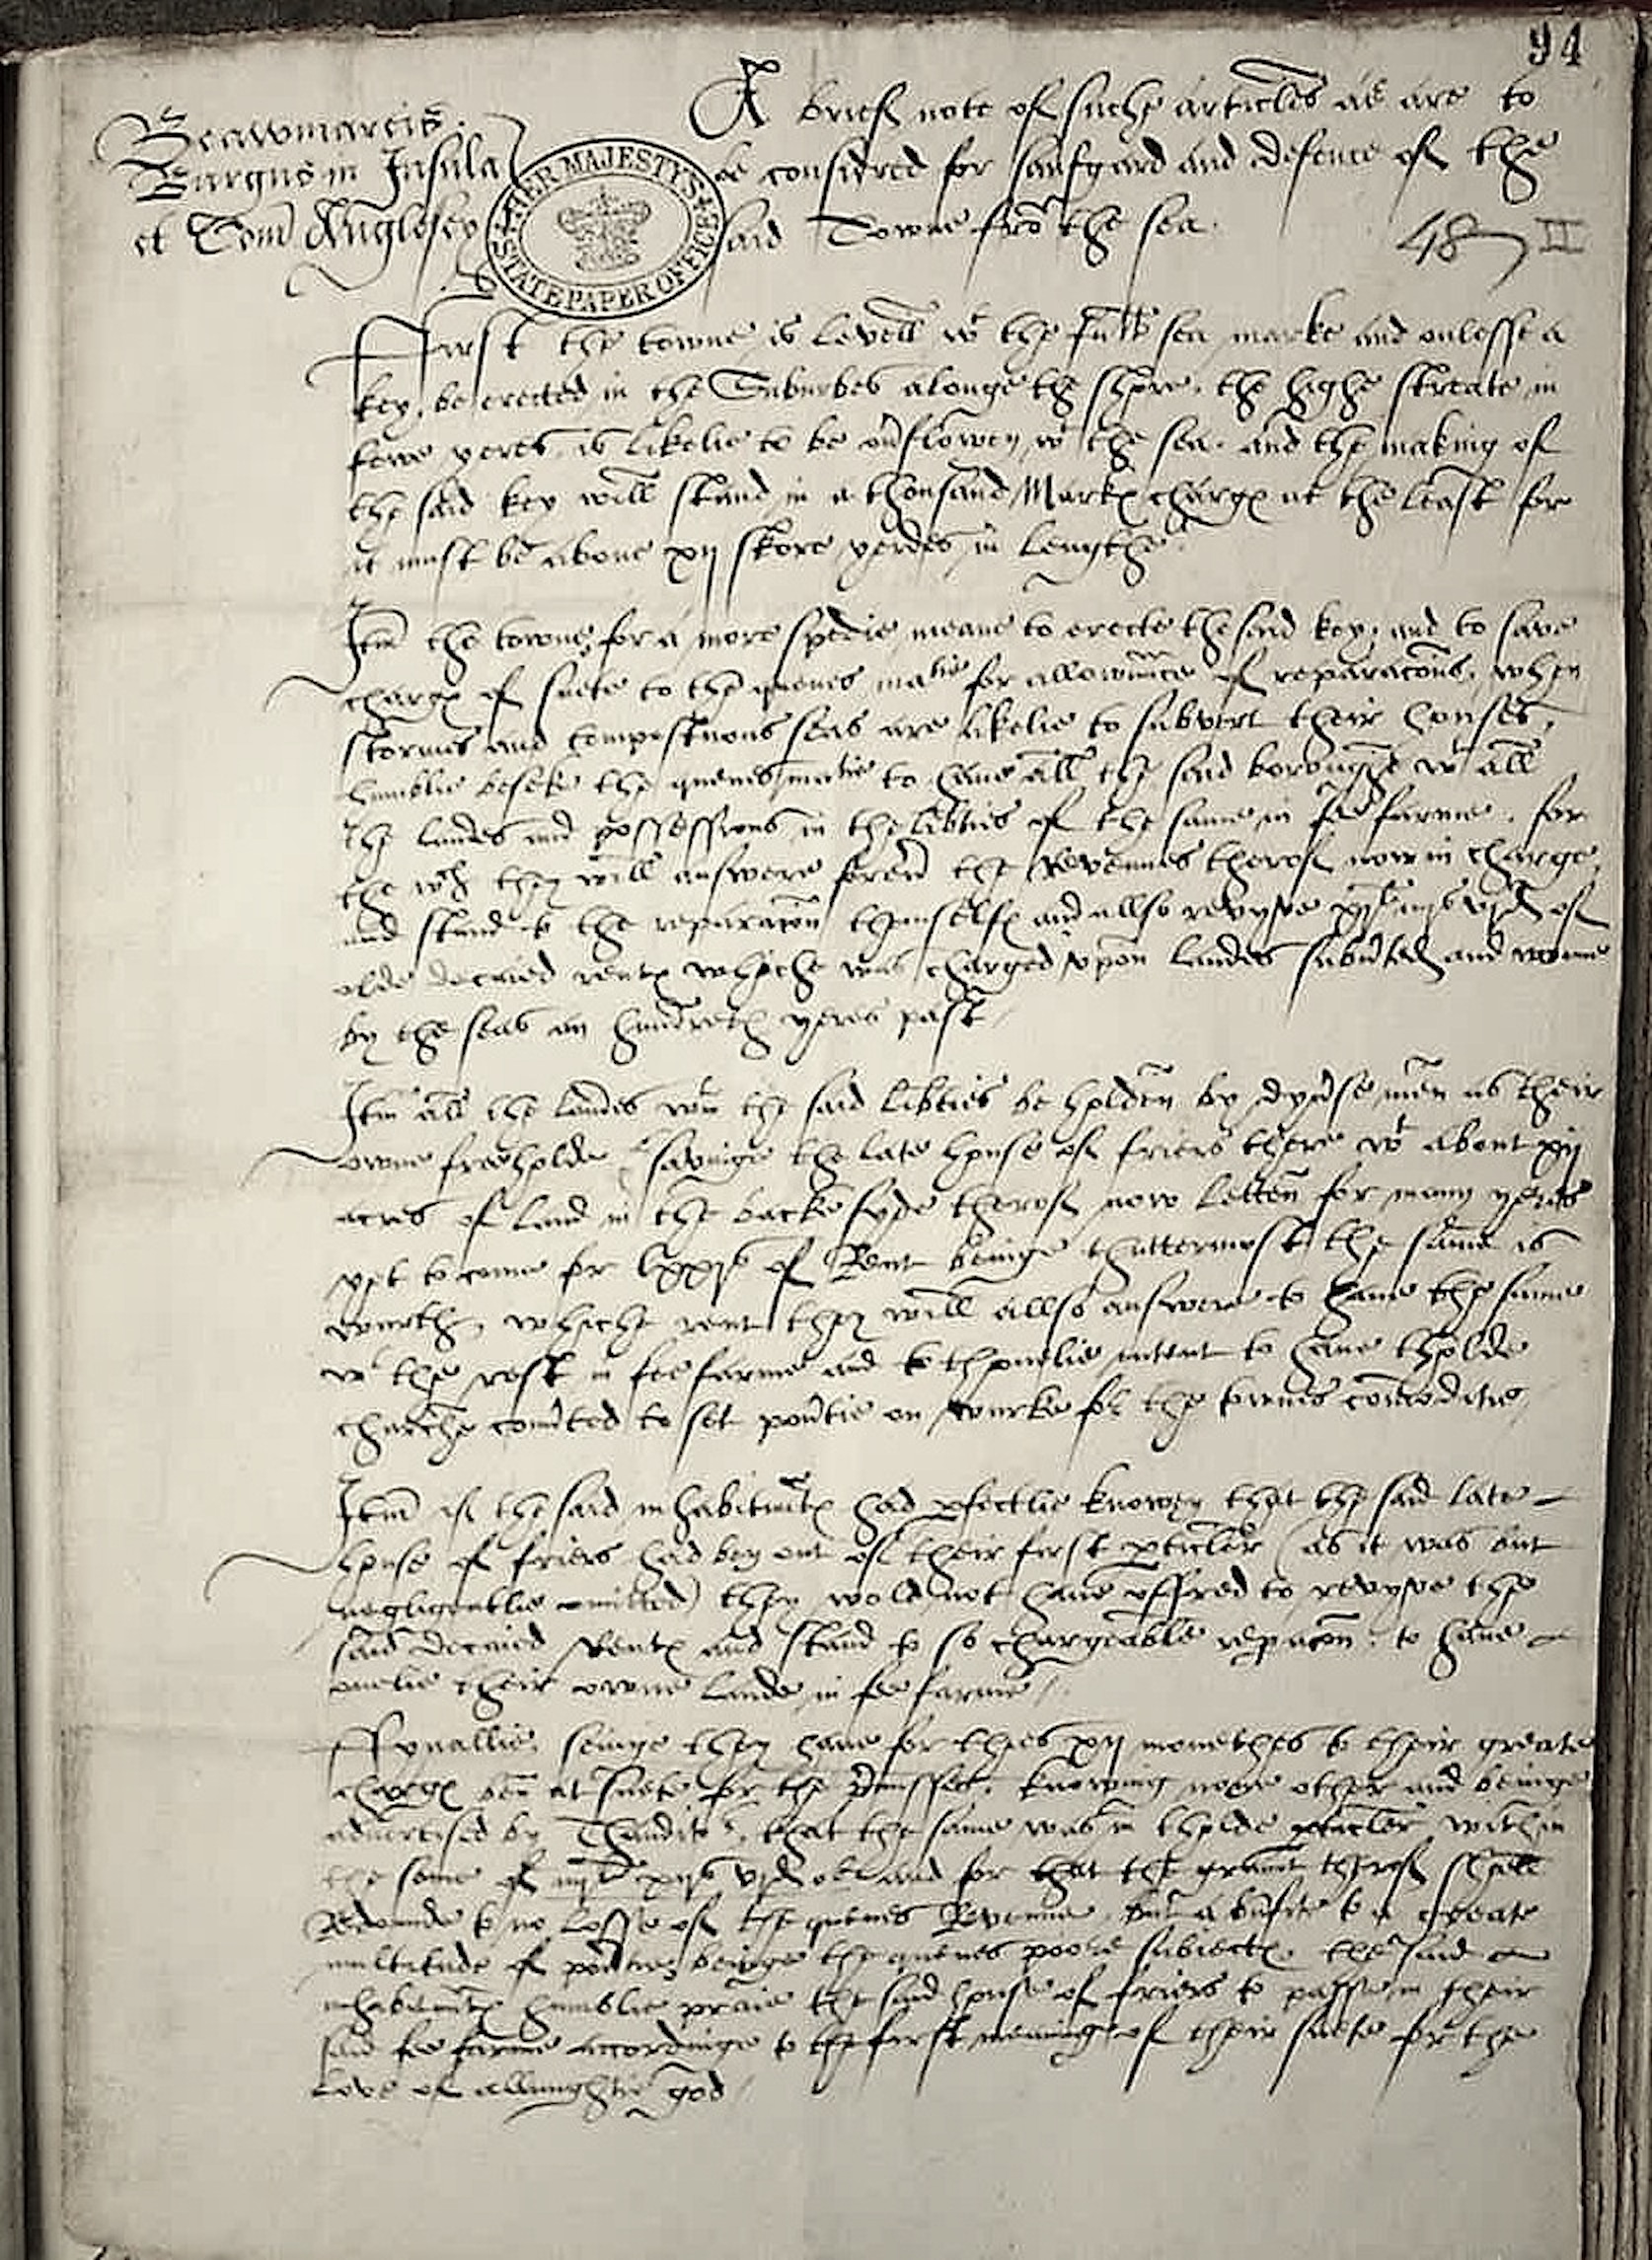 94
Beawmareis.
Burgus in Insula
et Com Anglesey
HER MAJESTY'S STATE PAPER OFFICE
A brief note of suche articles as are to
be considred for saufgard and defence of the
said Towne fro the sea.
48 II
First the towne is levell wt the full sea marke and onlesse a
key be erected in the Suburbes alonge the shore, the highe streate in
fewe yeres is likelie to be ov'flowen wt the sea. and the making of
the said key will stand in a thousand Markes charges at the least for
it must be above xij skore yerdes in lengthe.
Itm the towne for a more spedie meane to erecte the said key, and to save
charges of suete to the quenes matie for allowaunce of reparacons, when
stormes and tempestuous seas are likelie to subvert their houses,
humblie beseke the quenes matie to have all the said boroughe wt all
the landes and possessions in the lib'ties of the same in fee farme. for
the wch they will answere the Revenues therof now in charge,
and stand to the reparacon themselfes and allso revyve vjd of
olde decaied rentes whiche was charged upon landes subv'ted and worne
by the seas an hundreth yeres past.
Itm all the landes wtin the said lib'ties be holden by dyv'se men as their
owne freeholde (savinge the late house of friers there wt about xij
acres of land in the backe syde therof now letten for many yeres
yet to come for lxxjs of Rent beinge thuttermost the same is
wurthe, whiche rent they will allso answere to have the same
wt the rest in fee farme and to thonelie intent to have tholde
churche conv'ted to set pov'tie on wurke for the townes comoditie,
Itm if the said inhabitauntes had p'fectlie knowen that the said late
house of friers had ben out of their first p'ticler (as it was but
negligentlie omitted) they wold not have offred to revyve the
said decaied Rentes and stand to so chargeable rep'acon, to have
onelie their owne lande in fee farme.
Fynallie, seinge they have for thies xij monethes to their greate
charges ben at suete for the p'misses. knowing none other and beinge
advertised by Thauditor, that the same was in tholde p'ticler within
the some of vjd ob and for that the graunt therof shall
Redounde to no losse of the quenes Revenue, but a b'nfite to a greate
multitude of pov'tie, beinge the quenes poore subiectes. the said
inhabitauntes humblie praie the said house of friers to passe in their
said fee farme accordinge to the first meaninge of their suete for the
love of allmightie god.